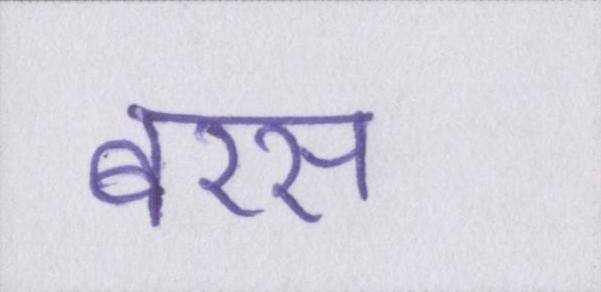 बरस